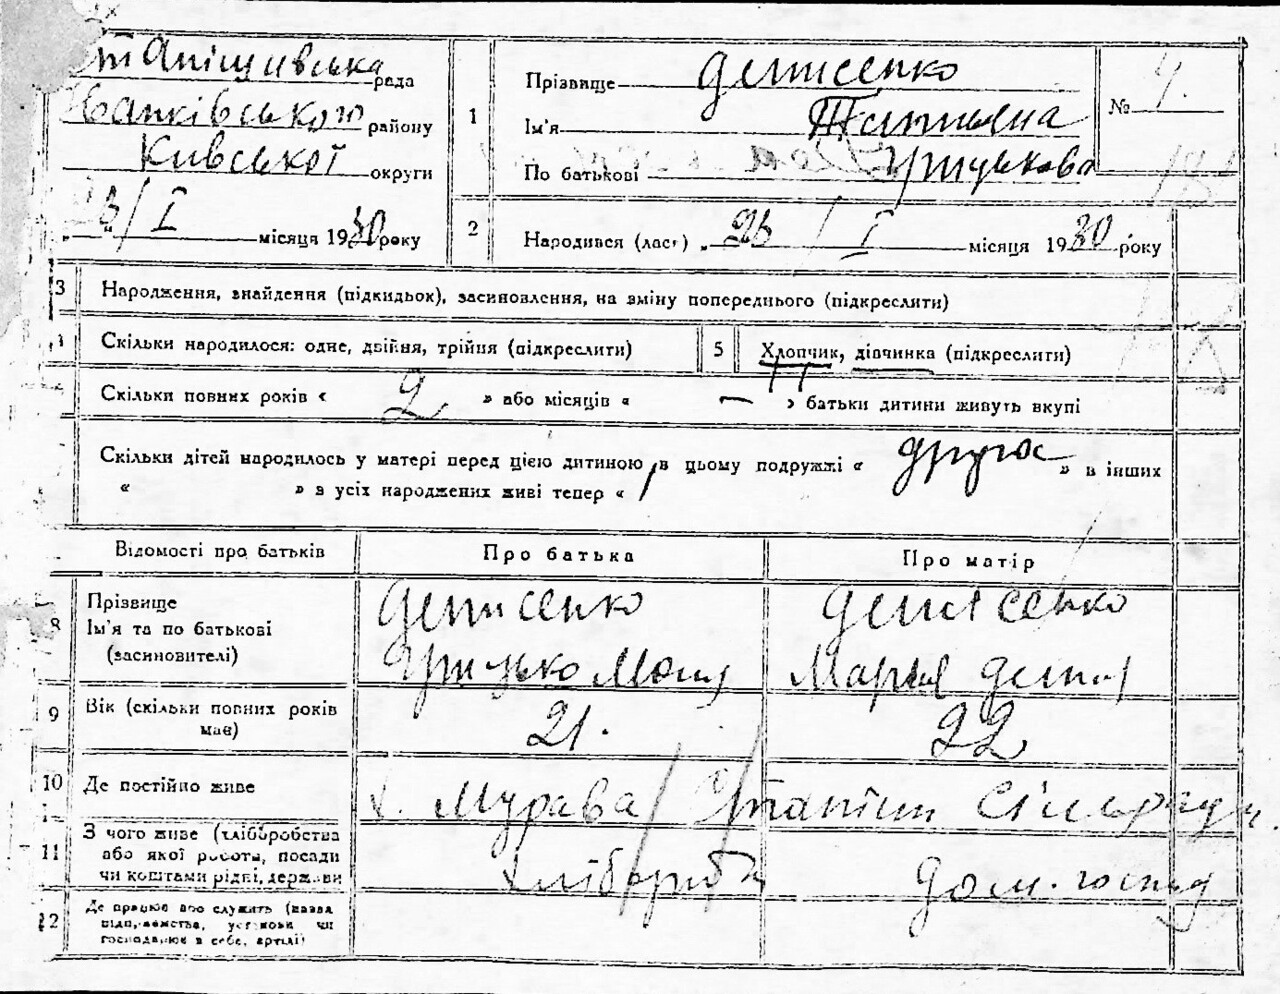 Станіщивська рада
Іванківського району
Київської округи
23/I місяця 1930 року
1 Прізвище Денисенко
Ім'я Татьяна
По батькові Грицькова
№ 4.
2 Народився (лась) „23 / I місяця 1930 року
3 Народження, знайдення (підкидьок), засиновлення, на зміну попереднього (підкреслити)
Скільки народилося: одне, двійня, трійня (підкреслити)
5 Хлопчик, дівчинка (підкреслити)
Скільки повних років « 2 » або місяців « — » батьки дитини живуть вкупі
Скільки дітей народилось у матері перед цією дитиною, в цьому подружжі « друга » в інших
« » з усіх народжених живі тепер «
Відомості про батьків Про батька Про матір
8 Прізвище
Ім'я та по батькові
(засиновителі)
Денисенко
Грицько
Денисенко
Марья
9 Вік (скільки повних років
мав)
21.
22
10 Де постійно живе
х. Мурава
11 З чого живе (хліборобства
або якої роботи, посади
чи коштами рідні, держави
хлібороб
Дом. госпад
12 Де працює або служить (назва
підприємства, установи чи
господарює в себе, артілі)